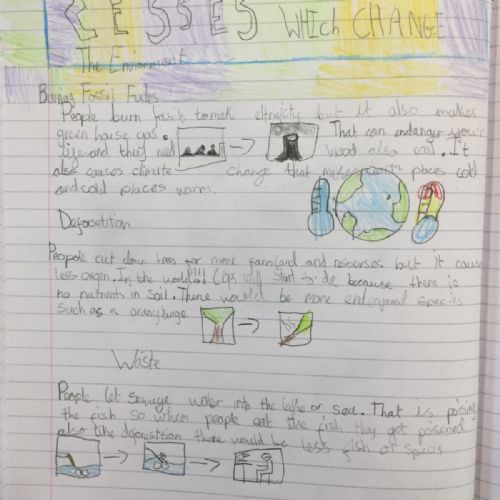 CESSES WHich CHANGE
The Enviorment
Burning Fossil Fules
People burn fossils to make eltricity but it also makes
green house gas. That can endanger your
life and they need wood also coal. It
also causes climate change that makes warm places cold
and cold places warm.
Deforestition
Peopole cut down trees for more farmland and resourses but it cause
less oxigen. In the world!!!! Crops will start to die because there is
no nutrients in soil. There would be more endangered species
such as a orangtange
Waste
People let sewage water into the lake or sea. That is poising
the fish so when people eat the fish they get poisened
also like deforestition there would be less fish of specis